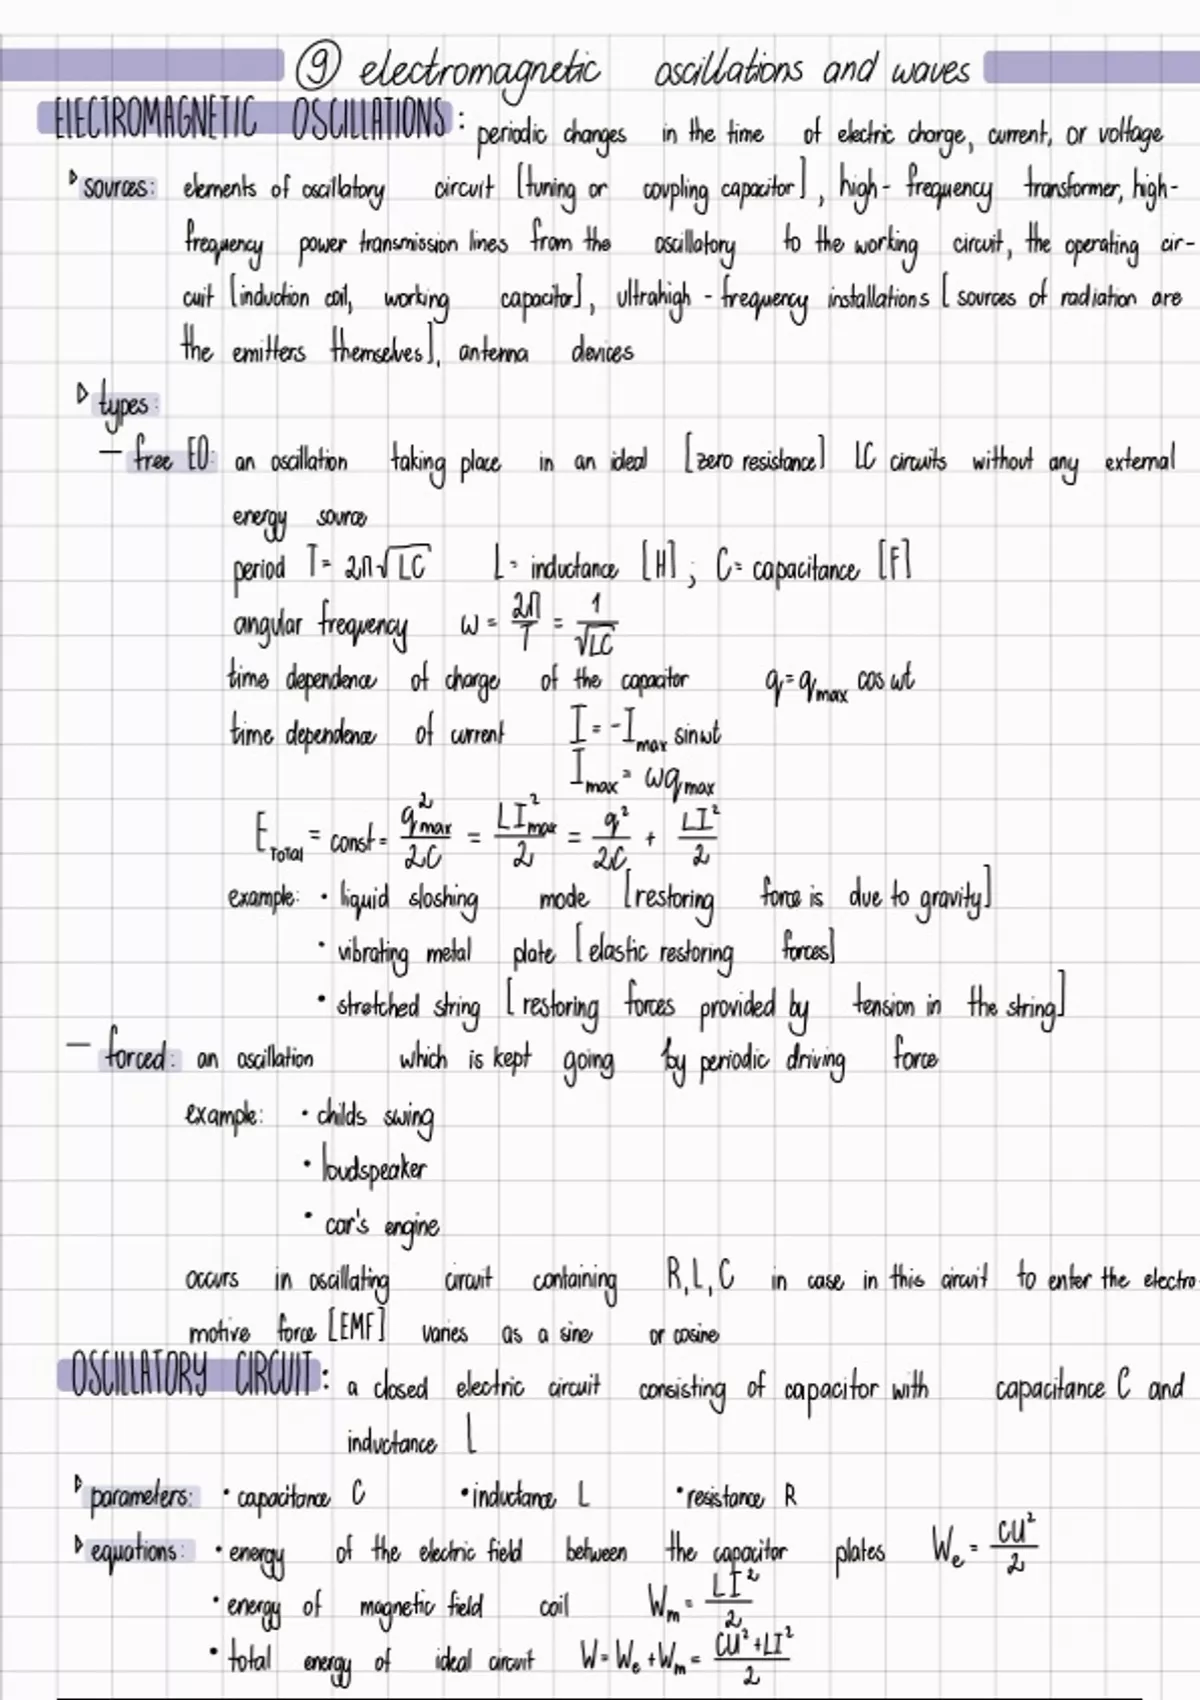 ⑨ electromagnetic oscillations and waves
ELECTROMAGNETIC OSCILLATIONS: periodic changes in the time of electric charge, current, or voltage
▷ sources: elements of oscillatory circuit [tuning or coupling capacitor], high-frequency transformer, high-
frequency power transmission lines from the oscillatory to the working circuit, the operating cir-
cuit [induction coil, working capacitor], ultrahigh-frequency installations [sources of radiation are
the emitters themselves], antenna devices
▷ types:
— free EO: an oscillation taking place in an ideal [zero resistance] LC circuits without any external
energy source
period T = 2π√LC L = inductance [H] ; C = capacitance [F]
angular frequency ω = 2π/T = 1/√LC
time dependence of charge of the capacitor q = q_max cos ωt
time dependence of current I = -I_max sinωt
I_max = ωq_max
E_TOTAL = const = q²_max/2C = LI²_max/2 = q²/2C + LI²/2
example: • liquid sloshing mode [restoring force is due to gravity]
• vibrating metal plate [elastic restoring forces]
• stretched string [restoring forces provided by tension in the string]
— forced: an oscillation which is kept going by periodic driving force
example: • childs swing
• loudspeaker
• car's engine
occurs in oscillating circuit containing R, L, C in case in this circuit to enter the electro-
motive force [EMF] varies as a sine or cosine
OSCILLATORY CIRCUIT: a closed electric circuit consisting of capacitor with capacitance C and
inductance L
▷ parameters: • capacitance C • inductance L • resistance R
▷ equations: • energy of the electric field between the capacitor plates W_e = CU²/2
• energy of magnetic field coil W_m = LI²/2
• total energy of ideal circuit W = W_e + W_m = CU² + LI²/2